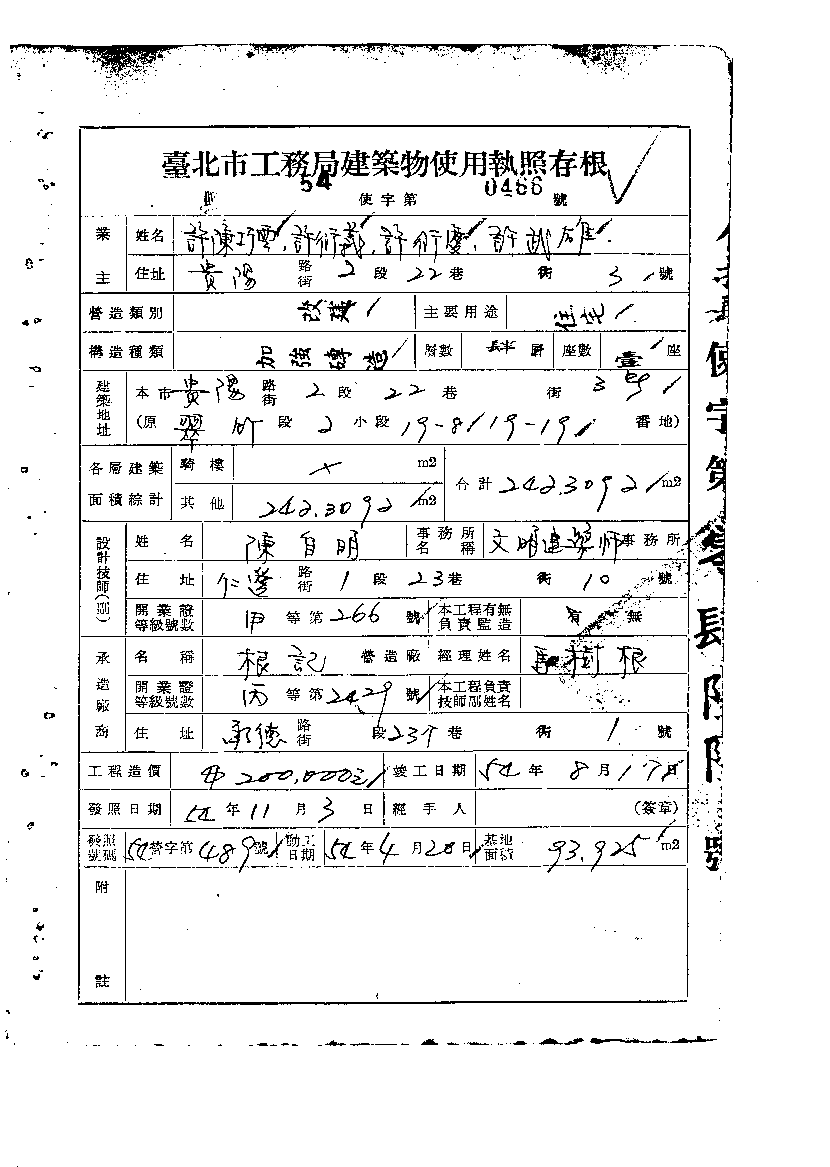 臺北市工務局建築物使用執照存根
54 使字第 0466 號
業主 姓名 許陳巧雲、許衍義、許衍慶、許武雄
住址 貴陽 路街 2 段 22 巷 街 3 號
營造類別 改建 主要用途 住宅
構造種類 加強磚造 層數 肆 層 座數 壹 座
建築地址 本市 貴陽 路街 2 段 22 巷 街 3 號
(原 翠竹 段 2 小段 19-8/19-19 番地)
各層建築面積綜計 騎樓 × m2 合計 242.3092 m2
其他 242.3092 m2
設計技師(別) 姓名 陳自明 事務所名稱 文明建築師事務所
住址 仁愛 路街 1 段 23 巷 街 10 號
開業證等級號數 甲 等第 266 號 本工程有無負責監造 有 無
承造廠商 名稱 根記 營造廠 經理姓名 樹根
開業證等級號數 丙 等第 2429 號 本工程負責技師部姓名
住址 承德 路街 段 巷 街 1 號
工程造價 200,000元 竣工日期 54 年 8 月 17 日
發照日期 54 年 11 月 3 日 經手人 (簽章)
發照號碼 54 營字第 489 號 動工日期 54 年 4 月 20 日 基地面積 93.925 m2
附註
使字第 肆陸陸號